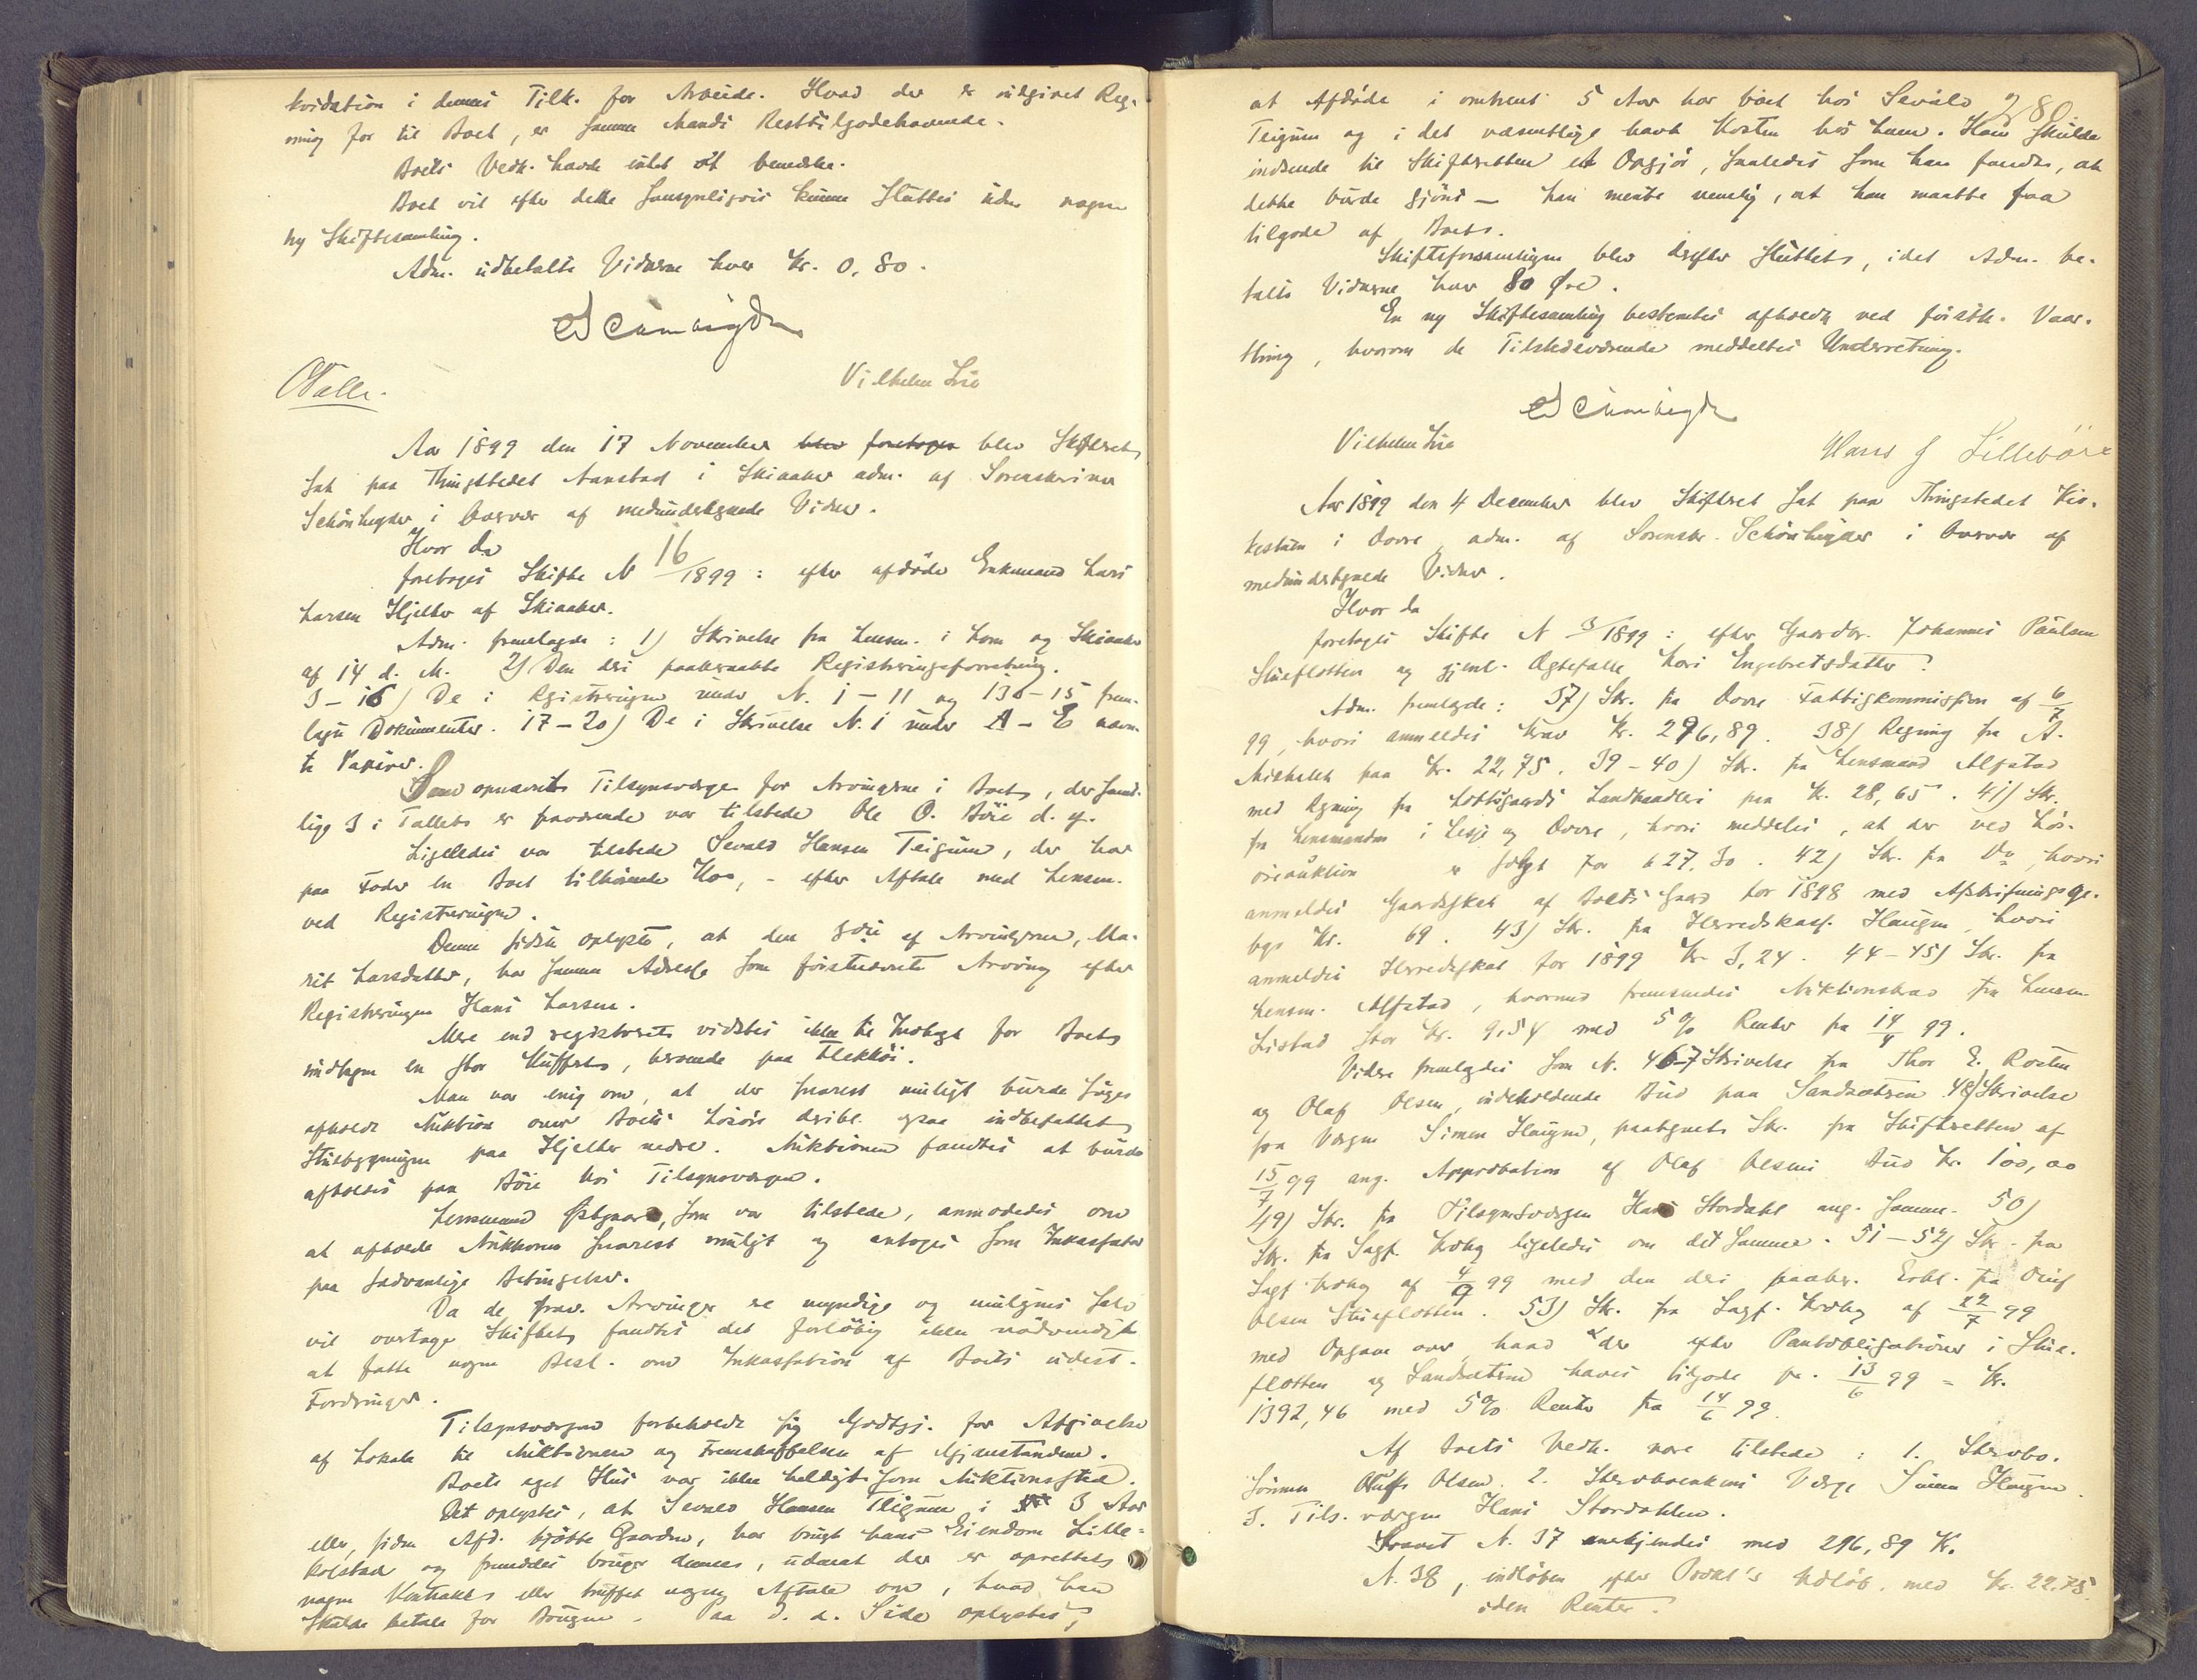 kvidation i dennes Tilk. for Arbeide. Hvad der er indgivet Reg-
ning for til Boet, er samme Mands Resttilgodehavende.
Boets Vedk. havde intet at bemerke.
Boet vil efter dette sansynligvis kunne sluttes uden nogen
ny Skiftesamling.
Adm. udbetalte Vidnerne hver Kr. 0,80.
Schönheyder
Vilhelm Lie
O Valle.
Aar 1899 den 17 November blev foretagen blev Skifteret
sat paa Thingstedet Aanstad i Skiaaker adm. af Sorenskriver
Schönheyder i Overvær af medundertegnede Vidner.
Hvor da
foretoges Skifte N 16/1899: efter afdöde Enkemand Lars
Larsen Hjelter af Skiaaker.
Adm. fremlagde: 1) Skrivelse fra Lensm. i Lom og Skiaaker
af 14 d. M. 2) Den deri paaberaabte Registreringsforretning.
3-16) De i Registreringen under N. 1-11 og 13-15 frem-
lagte Dokumenter. 17-20) De i Skrivelse N. 1 under A-E nævn-
te Papirer.
Som opnævnt Tilsynsværge for Arvingerne i Boet, der samt-
lige 3 i Tallet er fraværende var tilstede Ole O. Böie d. y.
Ligeledes var tilstede Sevald Hansen Teigum, der har
paa Foder en Boet tilhörende Ko, - efter Aftale med Lensm.
ved Registreringen.
Denne sidste oplyste, at den 3die af Arvingerne, Ma-
rit Larsdatter, har samme Adresse som förstnævnte Arving efter
Registreringen Hans Larsen.
Mere end registreret vidstes ikke til Indtægt for Boet
undtagen en stor Kuffert, beroende paa Flekköi.
Man var enig om, at der snarest muligt burde söges
afholdt Auktion over Boets Lösöre deribl. ogsaa indbefattet
Stuebygningen paa Hjelter nedre. Auktionen fandtes at burde
afholdes paa Böie hos Tilsynsværgen.
Lensmand Östgaard, som var tilstede, anmodedes om
at afholde Auktionen snarest muligt og antoges som Inkassator
paa sædvanlige Betingelser.
Da de frav. Arvinger er myndige og muligens selv
vil overtage Skiftet fandtes det forlöbig ikke nödvendigt
at fatte nogen Besl. om Inkassation af Boets udest.
Fordringer.
Tilsynsværgen forbeholdt sig Godtgj. for Afgivelse
af Lokale til Auktionen og Fremskaffelsen af Gjenstandene.
Boets eget Hus var ikke heldigt som Auktionssted.
Det oplystes, at Sevald Hansen Teigum i 3 Aar
eller, siden Afd. kjöbte Gaarden, har brugt hans Eiendom Lille-
kolstad og fremdeles bruger denne, uden at der er oprettet
nogen Kontrakt eller truffet nogen Aftale om, hvad han
skulde betale for Brugen. Paa d. a. Side oplystes,
280.
at Afdöde i omtrent 5 Aar har boet hos Sevald
Teigum og i det væsentlige havt Kosten hos ham. Han skulde
indsende til Skifteretten et Opgjör, saaledes som han fandt, at
dette burde gjöres — han mente nemlig, at han maatte faa
tilgode af Boet.
Skifteforsamlingen blev derefter sluttet, idet Adm. be-
talte Vidnerne hver 80 Öre.
En ny Skiftesamling bestemtes afholdt ved förstk. Vaar-
thing, hvorom de Tilstedeværende meddeltes Underretning.
Schönheyder
Vilhelm Lie
Hans J Lilleböie
Aar 1899 den 4 December blev Skifteret sat paa Thingstedet Kir-
kestuen i Dovre adm. af Sorenskr. Schönheyder i Overvær af
medundertegnede Vidner.
Hvor da
foretoges Skifte N 3/1899: efter Gaardbr. Johannes Paulsen
Stueflotten og gjenl. Ægtefælle Kari Engebretsdatter.
Adm. fremlagde: 37) Skr. fra Dovre Fattigkommission af 6/7
99, hvori anmeldes Krav Kr. 296,89. 38) Regning fra A.
Michelet paa Kr. 22,75. 39-40) Skr. fra Lensmand Alfstad
med Regning fra Loftsgaards Landhandleri paa Kr. 28,65. 41) Skr.
fra Lensmanden i Lesje og Dovre, hvori meddeles, at der ved Lös-
öreauktion er solgt for 627.30. 42) Skr. fra Do, hvori
anmeldes Gaardskat af Boets Gaard for 1898 med Afskrivningsge-
byr Kr. 69. 43) Skr. fra Herredskass. Haugen, hvori
anmeldes Herredsskat for 1899 Kr. 3,24. 44-45) Skr. fra
Lensm. Alfstad, hvormed fremsendes Auktionskrav fra Lensm.
Listad stor Kr. 9,54 med 5% Renter fra 14/4 99.
Videre fremlagdes som N. 46-7 Skrivelse fra Thor E. Rosten
og Olaf Olsen, indeholdende Bud paa Sandsætren. 48) Skrivelse
fra Værgen Simen Haugen, paategnet Skr. fra Skifteretten af
15/7 99 ang. Approbation af Olaf Olsens Bud Kr. 100,00
49) Skr. fra Tilsynsværgen Hans Stordahl ang. samme. 50)
Skr. fra Sagf. Kroby ligeledes om det samme. 51-52) Skr. fra
Sagf. Kroby af 4/9 99 med den deri paaber. Erkl. fra Oluf
Olsen Stueflotten. 53) Skr. fra Sagf. Kroby af 22/7 99
med Opgave over, hvad der efter Pantobligationer i Stue-
flotten og Sandsætren haves tilgode pr. 13/6 99 = Kr.
1392,46 med 5% Renter fra 14/6 99.
Af Boets Vedk. vare tilstede: 1. Stervbo-
sönnen Oluf Olsen. 2. Stervboenkens Værge Simen Haugen.
3. Tils. værgen Hans Stordahlen.
Kravet N. 37 anerkjendes med 296,89 Kr.
N. 38, indlöben efter Prokl's Udlöb, med Kr. 22,75
uden Renter.